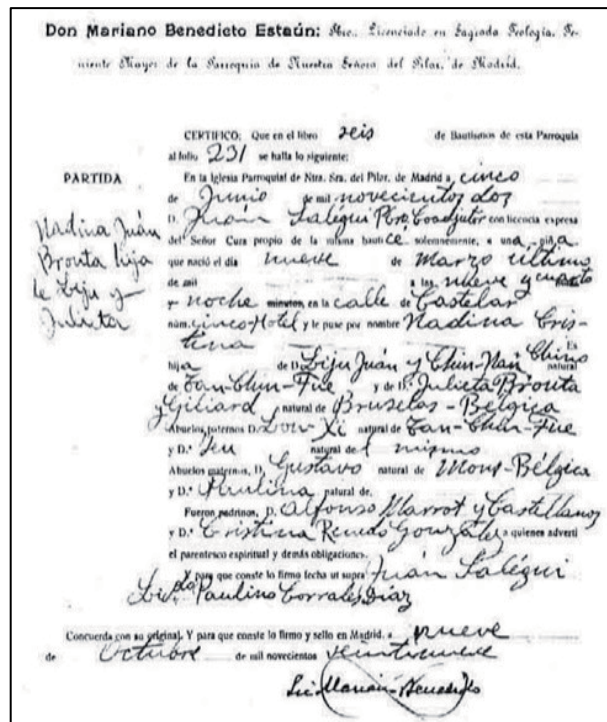 Don Mariano Benedicto Estaún: Pbro. Licenciado en Sagrada Teología, Te-
niente Mayor de la Parroquia de Nuestra Señora del Pilar, de Madrid.
CERTIFICO: Que en el libro seis de Bautismos de esta Parroquia
al folio 231 se halla lo siguiente:
PARTIDA
Nadina Juán
Bronta hija
de Liju y
Julieta
En la Iglesia Parroquial de Ntra. Sra. del Pilar, de Madrid a cinco
de Junio de mil novecientos dos
D. Juán Salégui Pbro. Coadjutor con licencia expresa
del Señor Cura propio de la misma bauticé solemnemente, a una niña
que nació el día nueve de Marzo último
de mil a las nueve y cuarto
noche minutos, en la calle de Castelar
núm. cinco-Hotel y le puse por nombre Nadina Cris-
tina Es
hija de D. Liju Juán y Chin-Nan Chino natural
de Tan-Chin-Fue y de D.ª Julieta Bronta
y Giliard natural de Bruselas-Bélgica
Abuelos paternos D. Lou-Xi natural de Tan-Chin-Fue
y D.ª Jeu natural del mismo
Abuelos maternos, D. Gustavo natural de Mons-Bélgica
y D.ª Paulina natural de.
Fueron padrinos, D. Alfonso Marrot y Castellanos
y D.ª Cristina González a quienes advertí
el parentesco espiritual y demás obligaciones.
Y para que conste lo firmo fecha ut supra Juán Salégui
Paulino Corrales Díaz
Concuerda con su original. Y para que conste lo firmo y sello en Madrid, a nueve
de Octubre de mil novecientos veintinueve
Lic. Marian Benedicto